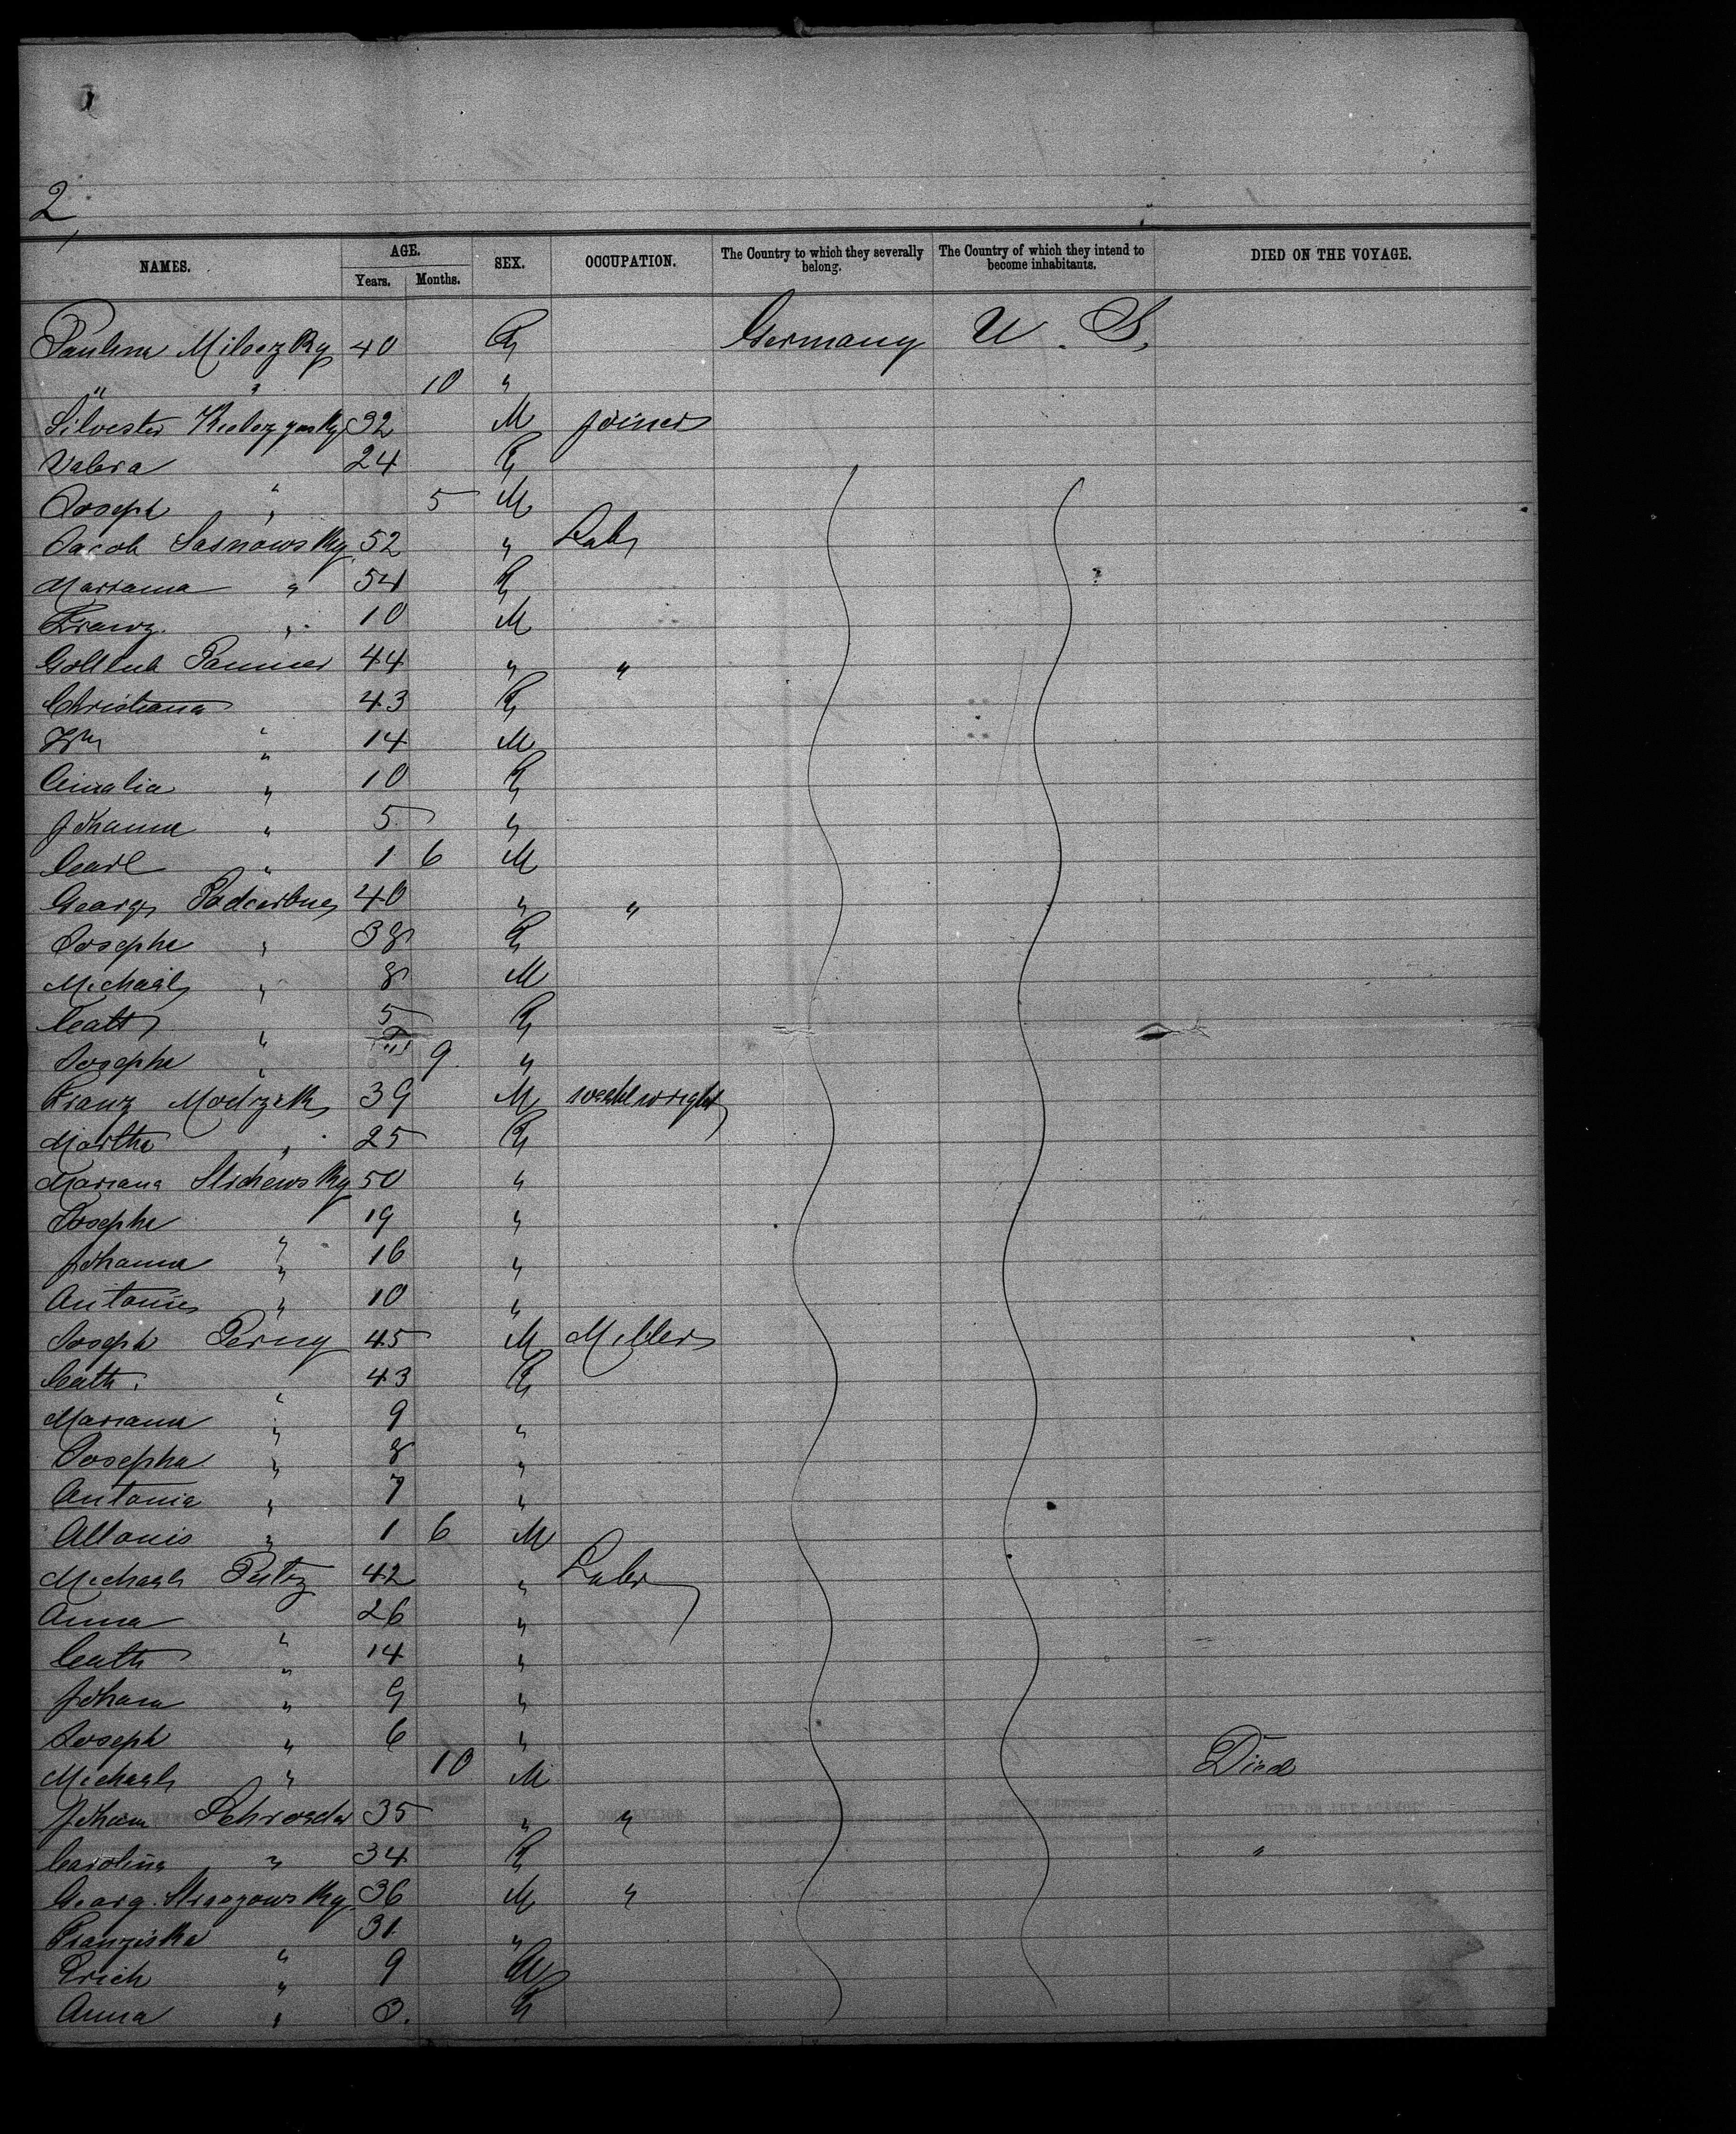 2
NAMES. AGE. SEX. OCCUPATION. The Country to which they severally belong. The Country of which they intend to become inhabitants. DIED ON THE VOYAGE.
Years. Months.
Paulina 40 F Germany U. S.
" " 10 "
Silvester 32 M Joiner
Valera " 24 F
Joseph " 5 M
Jacob Sasnowsky 52 " Labr
Marianna " 54 F
Franz " 10 M
Gottlieb 44 " "
Christiana 43 F
Wm " 14 M
Amalia " 10 F
Johanna " 5 "
Carl " 1 6 M
Georg 40 " "
Josepha " 38 F
Michael " 8 M
Cath " 5 F
Josepha " 9 "
Franz Modrzek 39 M
Martha " 25 F
Mariana 50 "
Josepha " 19 "
Johanna " 16 "
Antonie " 10 "
Joseph Perny 45 M Miller
Cath. " 43 F
Marianna " 9 "
Josepha " 8 "
Antonia " 7 "
" 1 6 M
Michael 42 " Labr
Anna " 26 "
Cath " 14 "
Johann " 9 "
Joseph " 6 "
Michael " 10 M Died
Johann Schroeder 35 " "
Carolina " 34 F "
Georg 36 M "
Franziska " 31 "
Erich " 9 M
Anna " 3. F